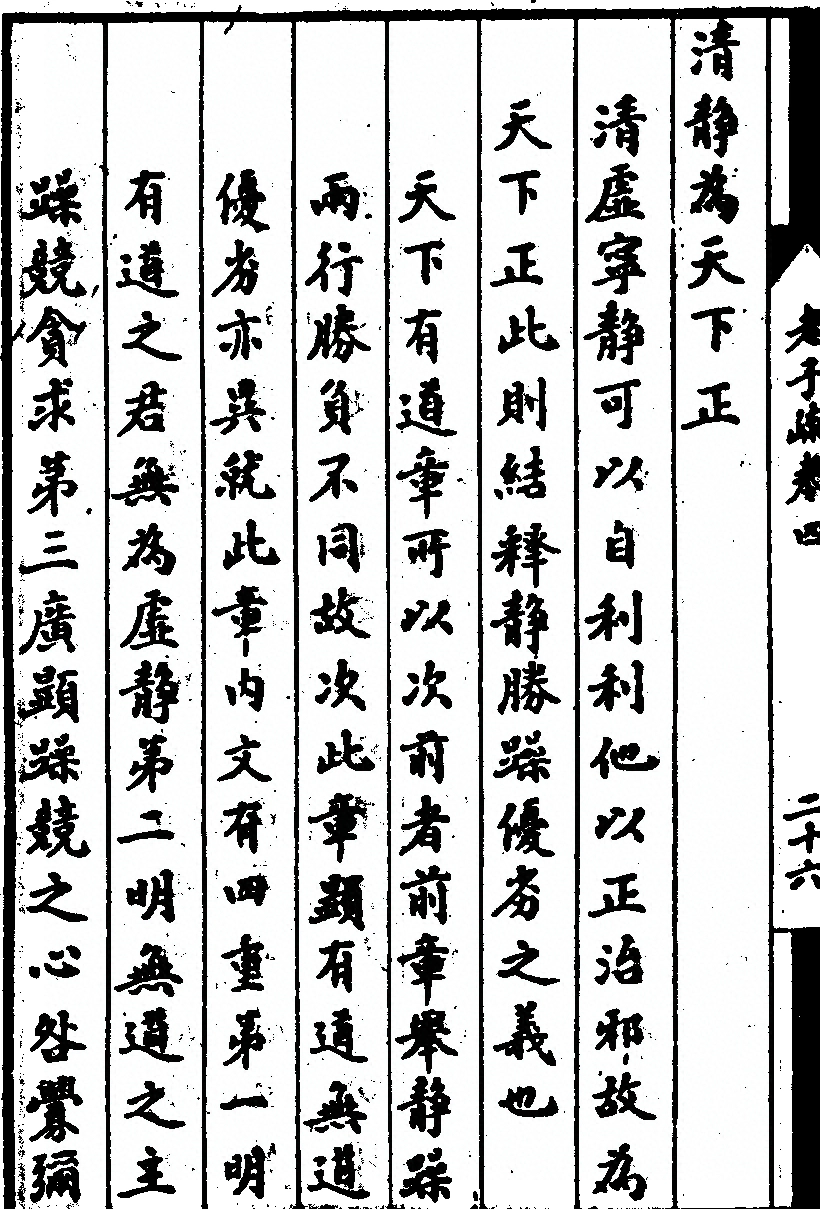 老子疏卷四
二十六
清静為天下正
清虛寧静可以自利利他以正治邪故為
天下正此則結釋静勝躁優劣之義也
天下有道章所以次前者前章舉静躁
兩行勝負不同故次此章顯有道無道
優劣亦異就此章内文有四重第一明
有道之君無為虛静第二明無道之主
躁競貪求第三廣顯躁競之心咎舋彌